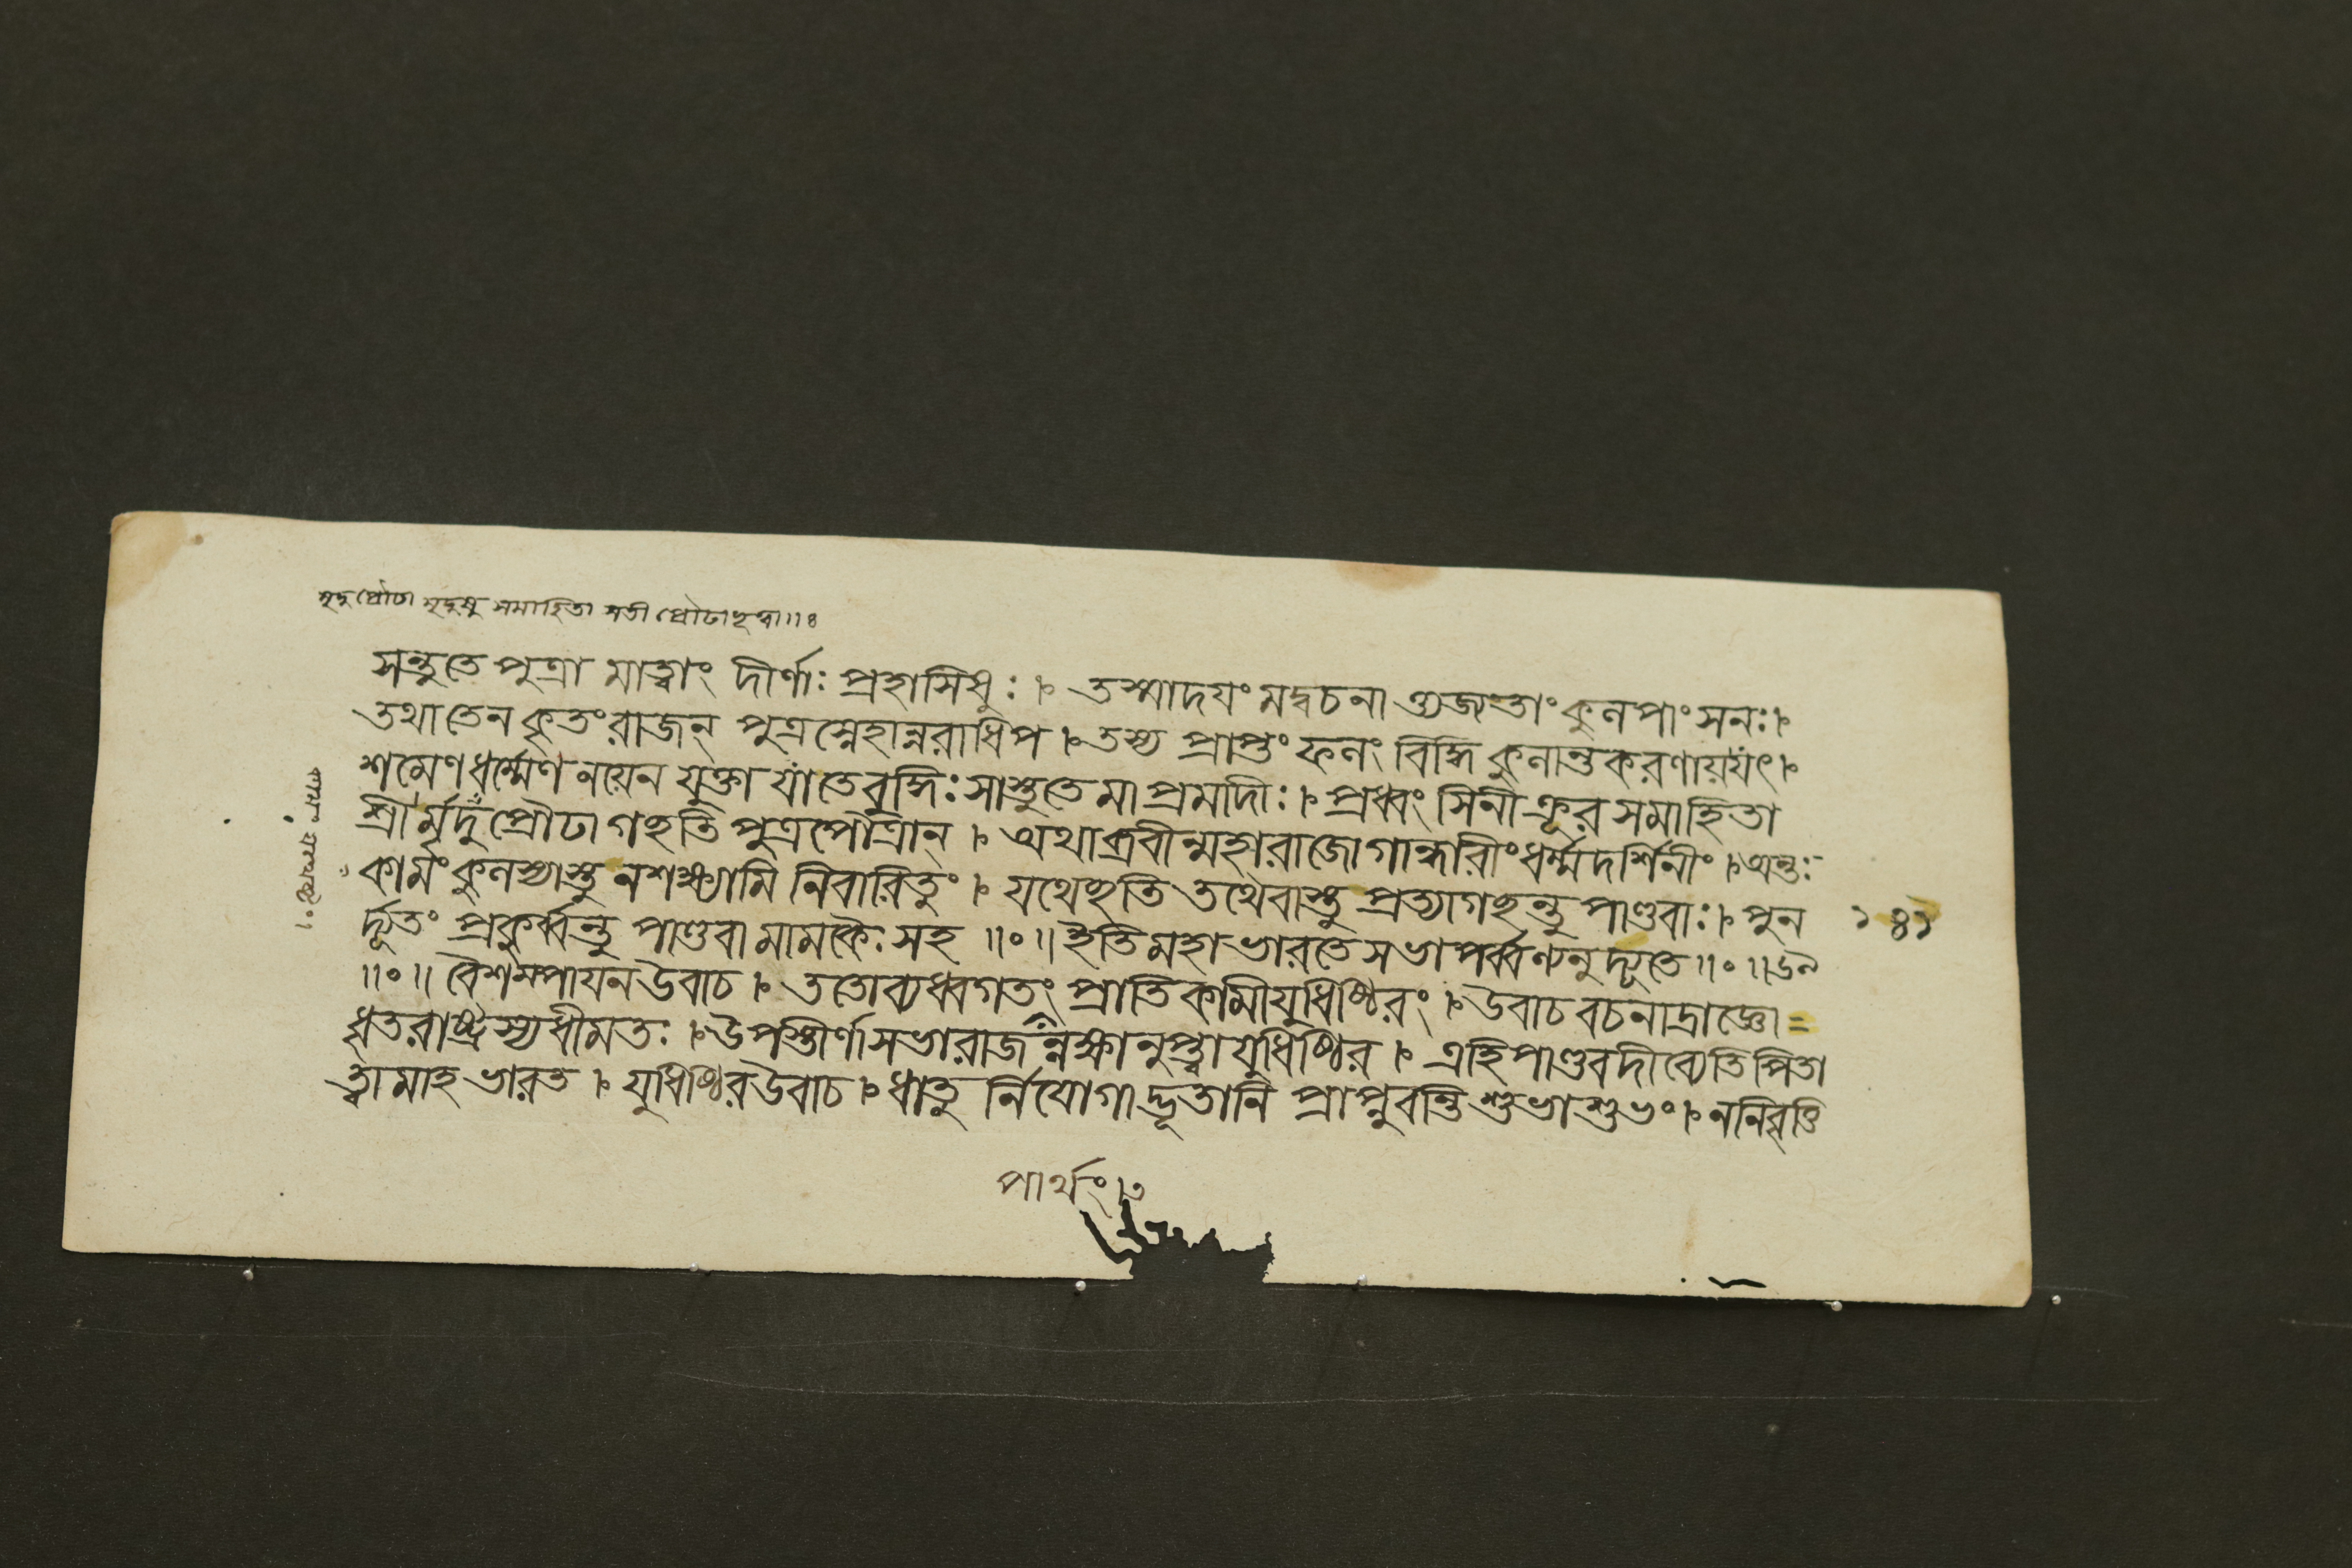 মৃদুপ্রৌঢা মৃদুষু সমাহিতা সতী প্রৌঢা হৃত্বা॥৪
সন্তুতে পুত্রা মাত্বাং দীর্ণাঃ প্রহাসিষুঃ। তস্মাদযং মদ্বচনা ত্ত্যজ্যতাং কুলপাংসনঃ।
তথাতেন কৃতংরাজন্ পুত্রস্নেহান্নরাধিপ। তস্য প্রাপ্তং ফলং বিদ্ধি কুলান্তকরণাযযৎ।
শমেণধর্ম্মেণ নযেন যুক্তা যাতেবুদ্ধিঃ সাস্তুতে মাপ্রমাদীঃ। প্রধ্বংসিনী ক্রূর সমাহিতা
শ্রীর্মৃদুপ্রৌঢা গছতি পুত্রপৌত্রান্। অথাব্রবীন্মহারাজো গান্ধারীং ধর্ম্মদর্শিনীং। অন্তঃ
কামং কুলস্যাস্তু নশক্ষ্যামি নিবারিতুং। যথেছতি তথৈবাস্তু প্রত্যাগছন্তু পাণ্ডবাঃ। পুন
র্দ্দ্যূতং প্রকুর্ব্বন্তু পাণ্ডবা মামকৈঃ সহ॥০॥ ইতি মহাভারতে সভাপর্ব্বণ্যনুদ্যূতে॥০॥৬৯
॥০॥ বৈশম্পাযন উবাচ। ততোব্যধ্বগতং প্রাতিকামীযুধিষ্ঠিরং। উবাচ বচনাদ্রাজ্ঞো=
ধৃতরাষ্ট্রস্য ধীমতঃ। উপস্তীর্ণা সভারাজন্নক্ষানুপ্ত্বা যুধিষ্ঠির। এহিপাণ্ডবদীব্যেতি পিতা
ত্বামাহ ভারত। যুধিষ্ঠির উবাচ। ধাতু র্নিযোগাদ্ভূতানি প্রাপ্নুবন্তি শুভাশুভং। ননিবৃত্তি
১৪১
পার্থং।